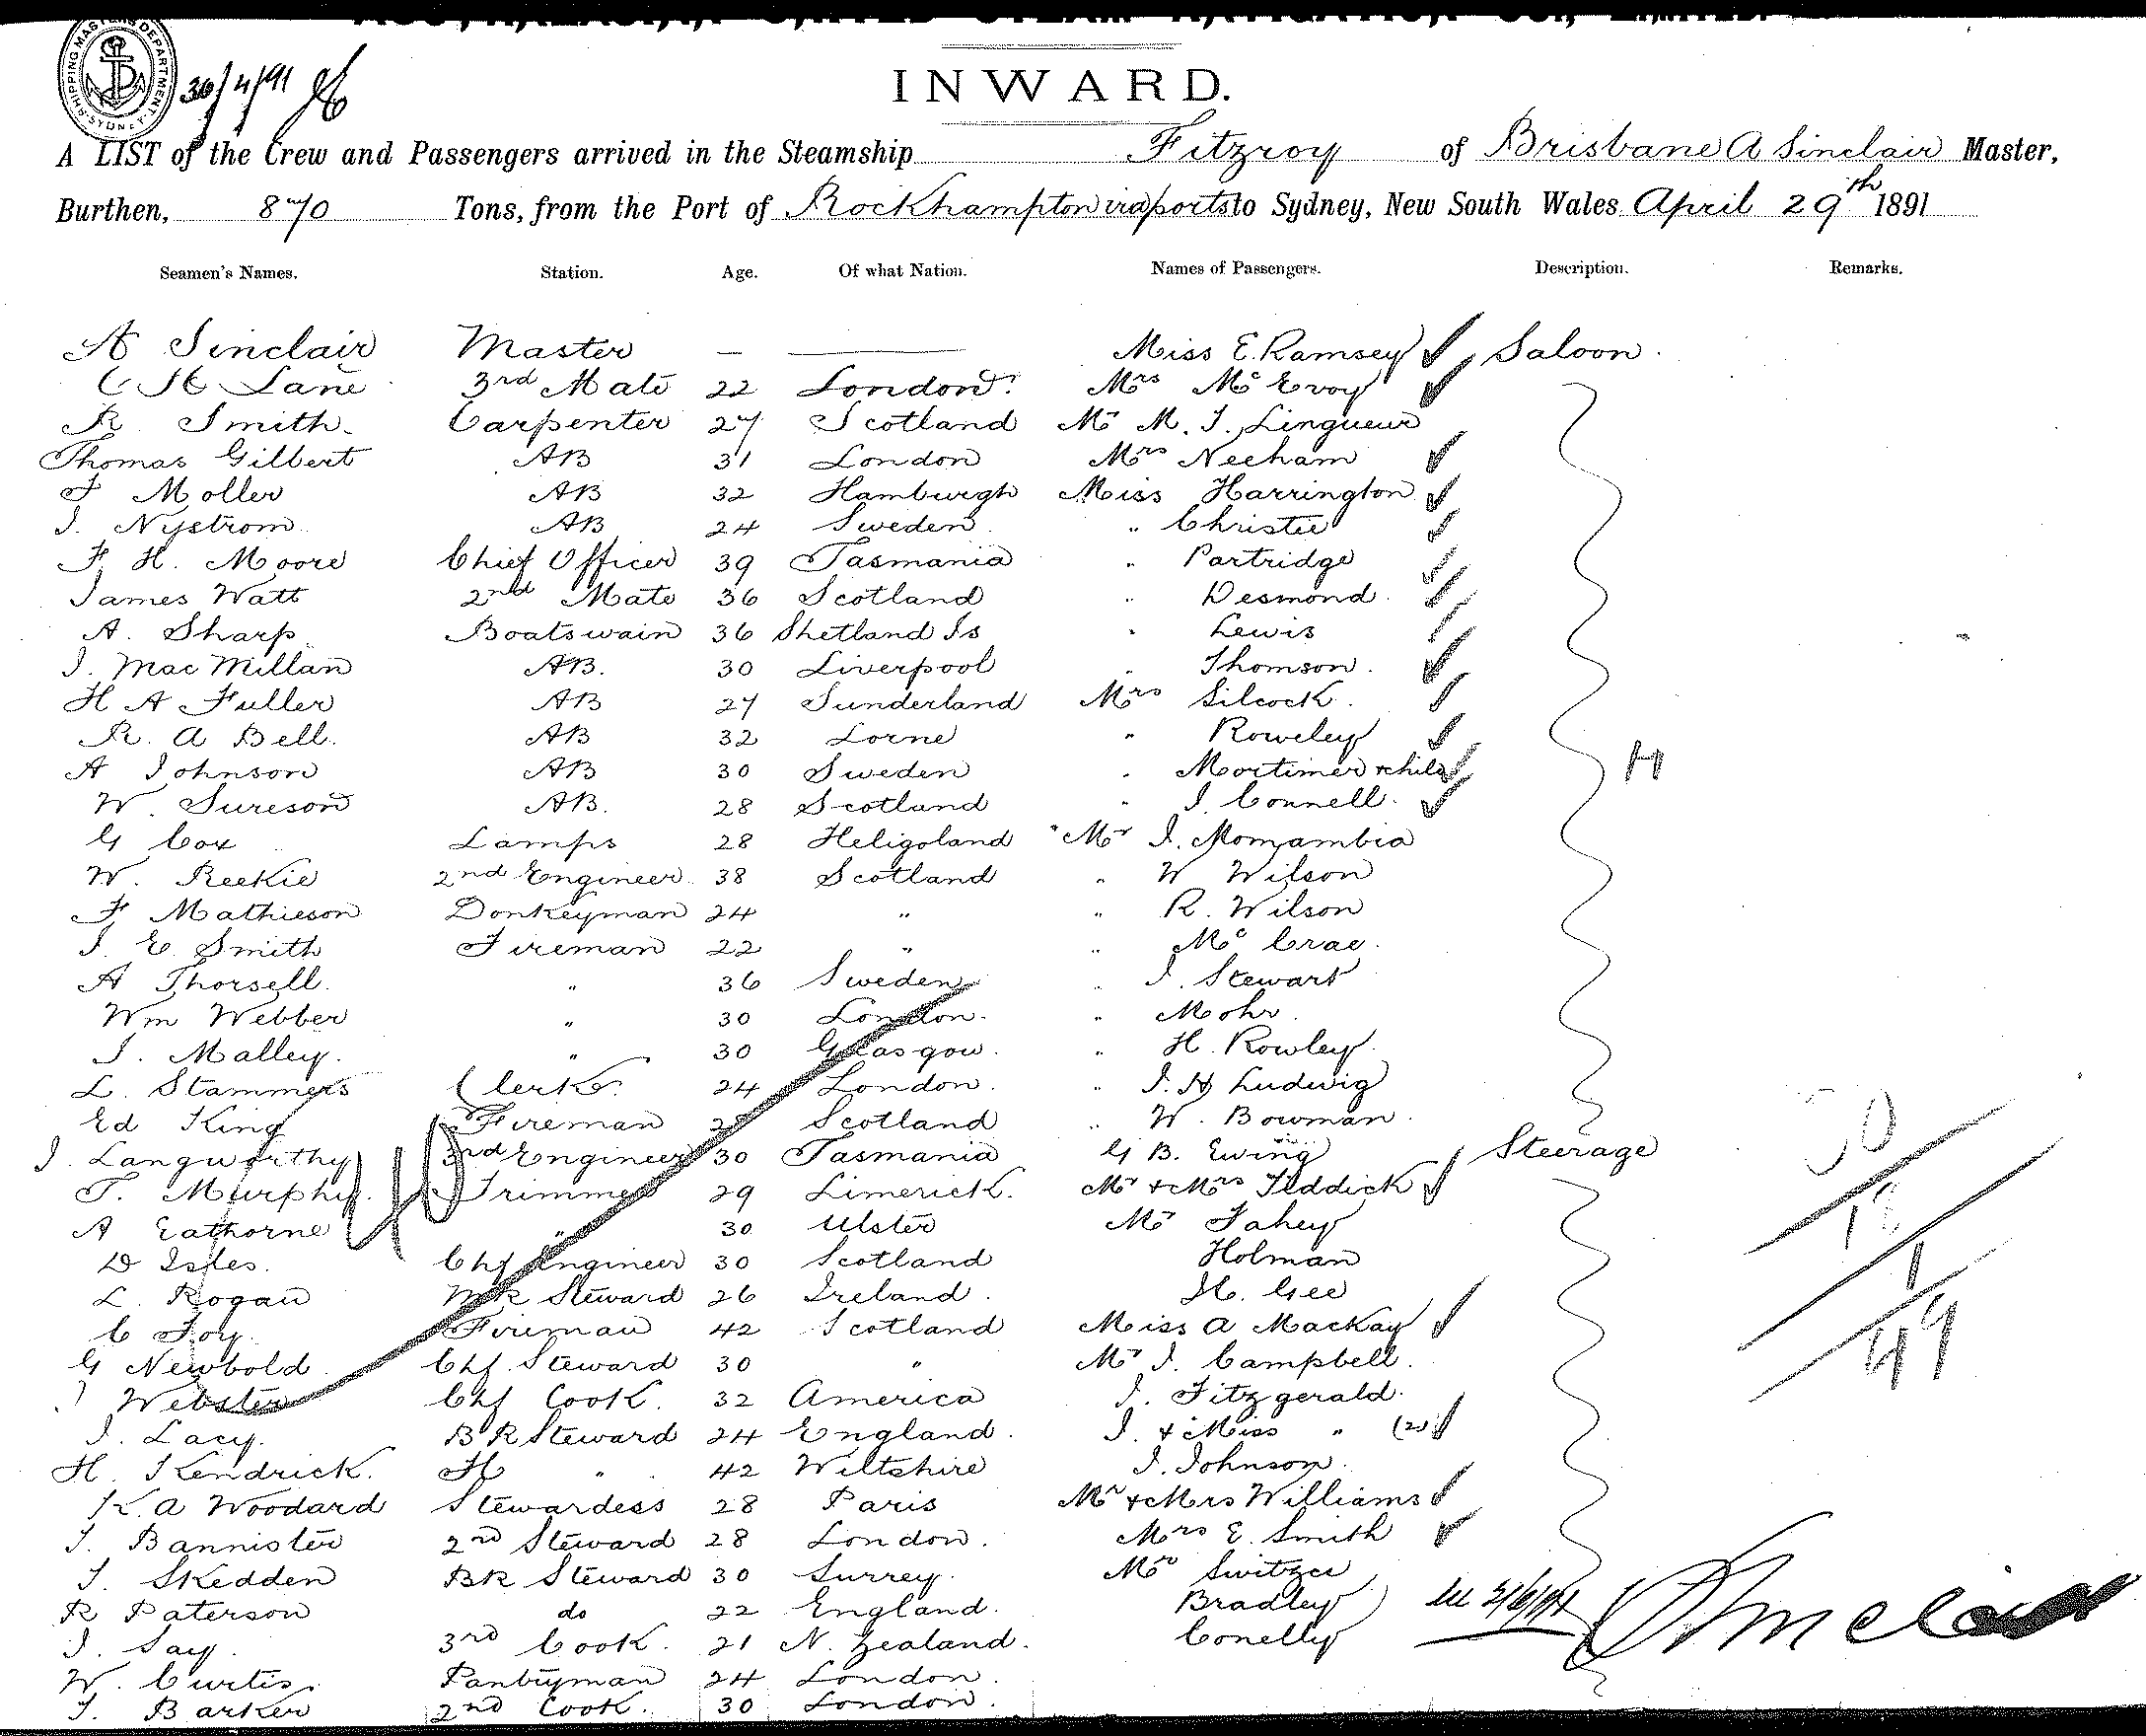 AUSTRALASIAN UNITED STEAM NAVIGATION CO., LIMITED.
SHIPPING MASTERS DEPARTMENT SYDNEY
30/4/91
INWARD.
A LIST of the Crew and Passengers arrived in the Steamship Fitzroy of Brisbane A Sinclair Master,
Burthen, 870 Tons, from the Port of Rockhampton via ports to Sydney, New South Wales April 29th 1891
Seamen's Names. Station. Age. Of what Nation. Names of Passengers. Description. Remarks.
A Sinclair Master — — Miss E. Ramsey Saloon.
C H Lane 3rd Mate 22 London. Mrs McEvoy
R. Smith. Carpenter 27 Scotland Mr M. J. Lingueur
Thomas Gilbert AB 31 London Mrs Neeham
F Moller AB 32 Hamburgh Miss Harrington
J. Nystrom AB 24 Sweden " Christie
F. H. Moore Chief Officer 39 Tasmania " Partridge
James Watt 2nd Mate 36 Scotland " Desmond.
A. Sharp Boatswain 36 Shetland Is " Lewis
J. MacMillan AB. 30 Liverpool " Thomson.
H A Fuller AB 27 Sunderland Mrs Silcock.
R. A Bell. AB 32 Lorne " Roweley
A Johnson AB 30 Sweden " Mortimer + child
W. Sureson AB. 28 Scotland " J. Connell.
G Cox Lamps 28 Heligoland Mr J. Momambia
W. Reekie 2nd Engineer 38 Scotland " W Wilson
F Mathieson Donkeyman 24 " " R. Wilson
J. E. Smith Fireman 22 " " McCrae.
A Thorsell. " 36 Sweden " J. Stewart
Wm Webber " 30 London. " Mohr.
J. Malley. " 30 Glasgow. " H. Rowley.
L. Stammers Clerk. 24 London. " J. H Ludwig
Ed King Fireman 28 Scotland " W. Bowman.
J. Langworthy 3rd Engineer 30 Tasmania G B. Ewing Steerage
T. Murphy. Trimmer 29 Limerick. Mr + Mrs Tiddick
A Eathorne " 30 Ulster Mr Fahey
D Isles. Chf Engineer 30 Scotland Holman
L. Rogan Steward 26 Ireland. H. Gee
C Foy. Fireman 42 Scotland Miss A Mackay
G Newbold Chf. Steward 30 " Mr J. Campbell.
J Webster Chf Cook. 32 America J. Fitzgerald.
J. Lacy. BR Steward 24 England. J. + Miss " (2)
H. Kendrick. H " 42 Wiltshire J. Johnson.
K. A Woodard Stewardess 28 Paris Mr + Mrs Williams
J. Bannister 2nd Steward 28 London. Mrs E. Smith
J. Skedden BR Steward 30 Surrey. Mr Switzer
R Paterson do 22 England. Bradley
J. Say 3rd Cook. 21 N. Zealand. Conelly
W. Curtis. Pantryman 24 London.
J. Barker 2nd Cook. 30 London.
H
40
30
18
1
49
A Sinclair